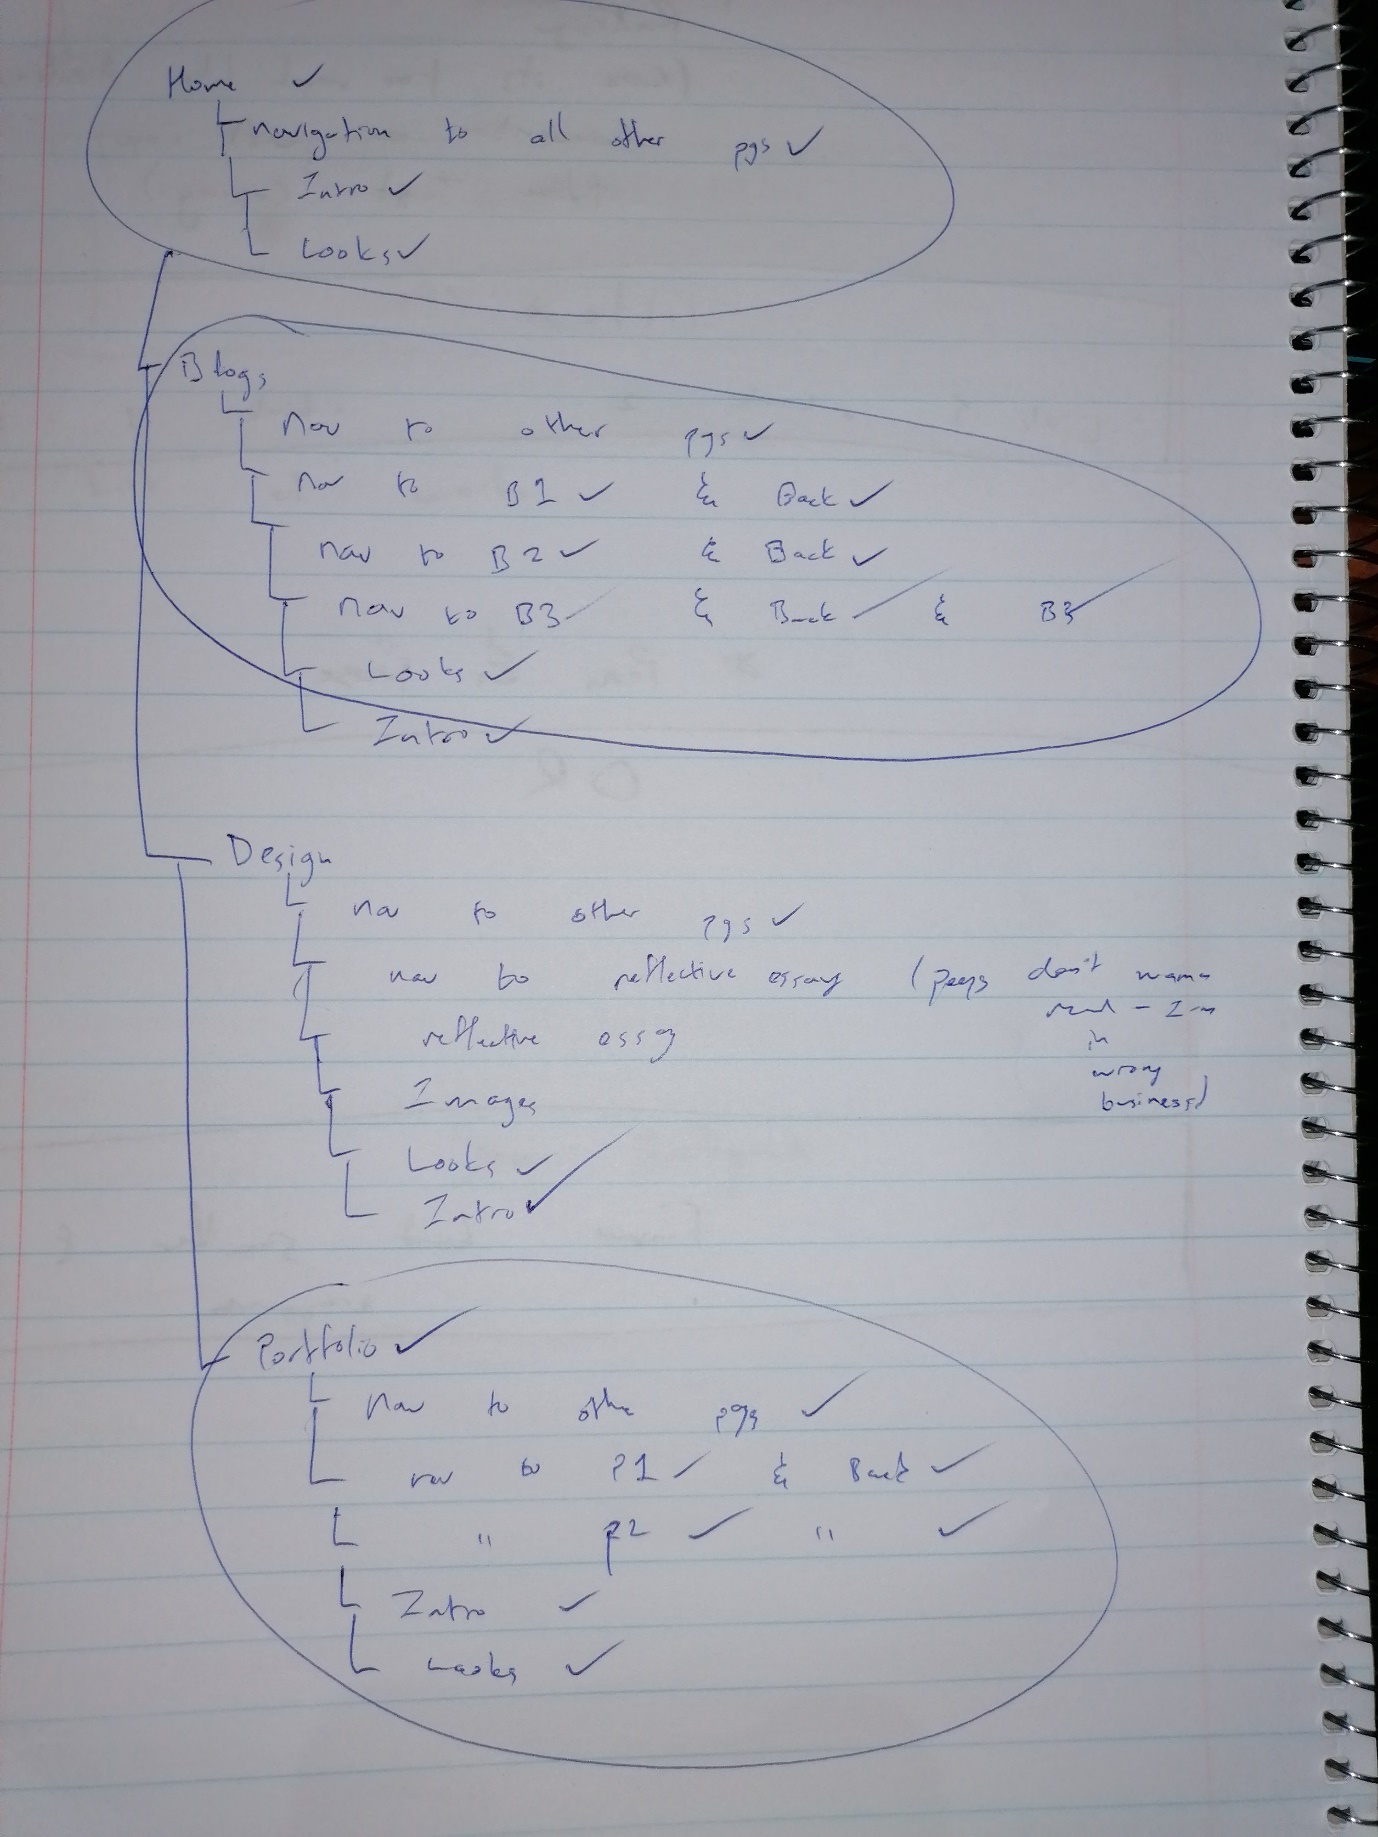 Home ✓
navigation to all other pgs ✓
Intro ✓
Looks ✓
Blogs
nav to other pgs ✓
nav to B1 ✓ & Back ✓
nav to B2 ✓ & Back ✓
nav to B3 ✓ & Back ✓ & B3 ✓
Looks ✓
Intro ✓
Design
nav to other pgs ✓
nav to reflective essay (peeps don't wanna
read - I'm
in
wrong
business)
reflective essay
Images
Looks ✓
Intro ✓
Portfolio ✓
nav to other pgs ✓
nav to P1 ✓ & Back ✓
" P2 ✓ " ✓
Intro ✓
Looks ✓